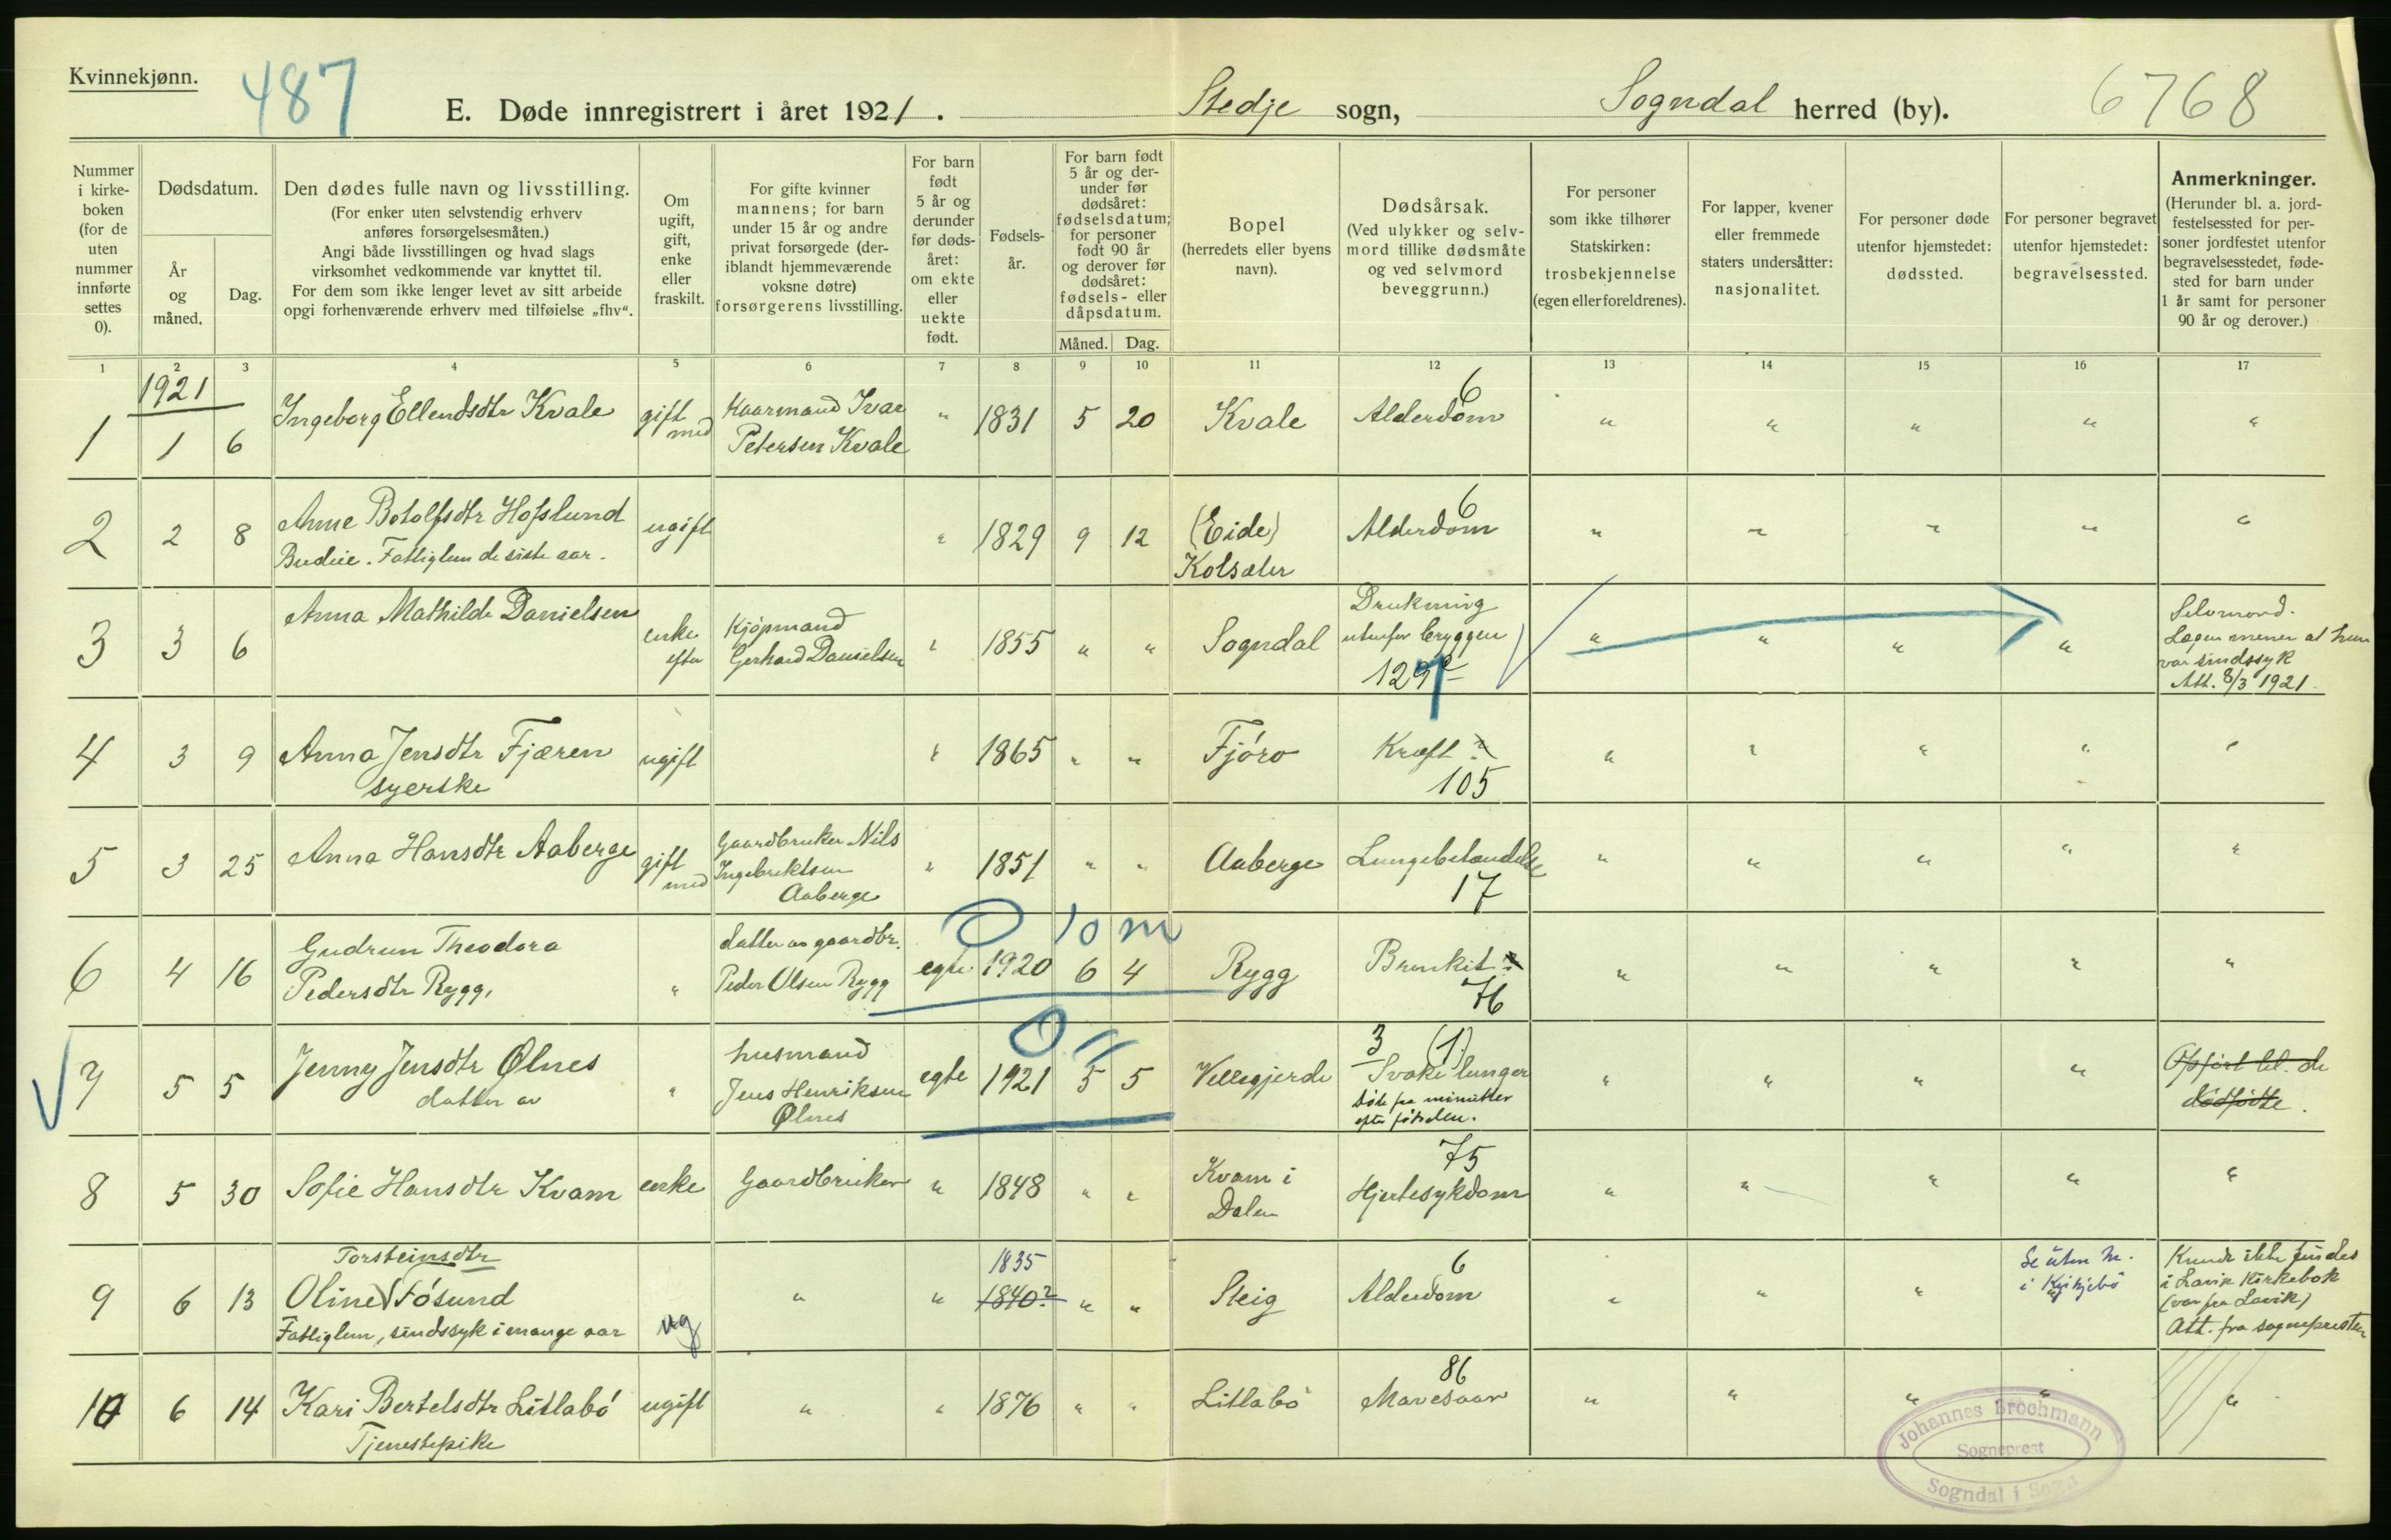 Kvinnekjønn.
487
E. Døde innregistrert i året 1921.
Stedje sogn,
Sogndal herred (by).
6768
Nummer
i kirke-
boken
(for de
uten
nummer
innførte
settes
0).
Dødsdatum.
År
og
måned.
Dag.
Den dødes fulle navn og livsstilling.
(For enker uten selvstendig erhverv
anføres forsørgelsesmåten.)
Angi både livsstillingen og hvad slags
virksomhet vedkommende var knyttet til.
For dem som ikke lenger levet av sitt arbeide
opgi forhenværende erhverv med tilføielse „fhv“.
Om
ugift,
gift,
enke
eller
fraskilt.
For gifte kvinner
mannens; for barn
under 15 år og andre
privat forsørgede (der-
iblandt hjemmeværende
voksne døtre)
forsørgerens livsstilling.
For barn
født
5 år og
derunder
før døds-
året:
om ekte
eller
uekte
født.
Fødsels-
år.
For barn født
5 år og der-
under før
dødsåret:
fødselsdatum;
for personer
født 90 år
og derover før
dødsåret:
fødsels- eller
dåpsdatum.
Måned. Dag.
Bopel
(herredets eller byens
navn).
Dødsårsak.
(Ved ulykker og selv-
mord tillike dødsmåte
og ved selvmord
beveggrunn.)
For personer
som ikke tilhører
Statskirken:
trosbekjennelse
(egen eller foreldrenes).
For lapper, kvener
eller fremmede
staters undersåtter:
nasjonalitet.
For personer døde
utenfor hjemstedet:
dødssted.
For personer begravet
utenfor hjemstedet:
begravelsessted.
Anmerkninger.
(Herunder bl. a. jord-
festelsessted for per-
soner jordfestet utenfor
begravelsesstedet, føde-
sted for barn under
1 år samt for personer
90 år og derover.)
1 2 3 4 5 6 7 8 9 10 11 12 13 14 15 16 17
1921
1 1 6 Ingeborg Ellendsdtr Kvale
gift med
Kaarmand Ivar
Petersen Kvale
" 1831 5 20 Kvale
6
Alderdom " " " " "
2 2 8 Anne Botolfsdtr Hofslund
Budeie. Fattiglem de siste aar.
ugift " 1829 9 12 (Eide)
Kolsæter
6
Alderdom " " " " "
3 3 6 Anna Mathilde Danielsen
enke
efter
Kjøpmand
Gerhard Danielsen
" 1855 " " Sogndal
Drukning
utenfor bryggen
129
" " " "
Selvmord.
Lægen mener at hun
var sindssyk
Att. 8/3 1921.
4 3 9 Anna Jensdtr Fjæren
syerske
ugift " 1865 " " Fjøro
Kræft ?
105
" " " " "
5 3 25 Anna Hansdtr Aaberge
gift
med
Gaardbruker Nils
Ingebrektsen
Aaberge
" 1851 " " Aaberge
Lungebetændelse
17
" " " " "
0 10 m
6 4 16 Gudrun Theodora
Pedersdtr Rygg.
"
datter av gaardbr.
Peder Olsen Rygg
egte 1920 6 4 Rygg
Bronkit ?
76
" " " " "
0 11
7 5 5 Jenny Jensdtr Ølnes
datter av
"
husmand
Jens Henriksen
Ølnes
egte 1921 5 5
3 (1)
Svake lunger
døde faa minutter
efter fødselen.
" " " "
Opført bl. de
dødfødte.
8 5 30 Sofie Hansdtr Kvam
enke Gaardbruker " 1848 " "
Kvam i
Dalen
75
Hjertesykdom " " " " "
Torsteinsdtr
9 6 13 Oline Føsund
Fattiglem, sindssyk i mange aar
ug " "
1835
1840?
" " Steig
6
Alderdom " " "
Kunde ikke findes
i Lavik Kirkebok
(var fra Lavik)
Att. fra sognepresten
10 6 14 Kari Bertelsdtr Litlabø
Tjenestepike
ugift " " 1876 " " Litlabø
86
Mavesaar " " " " "
Johannes Brochmann
Sogneprest
Sogndal i Sogn